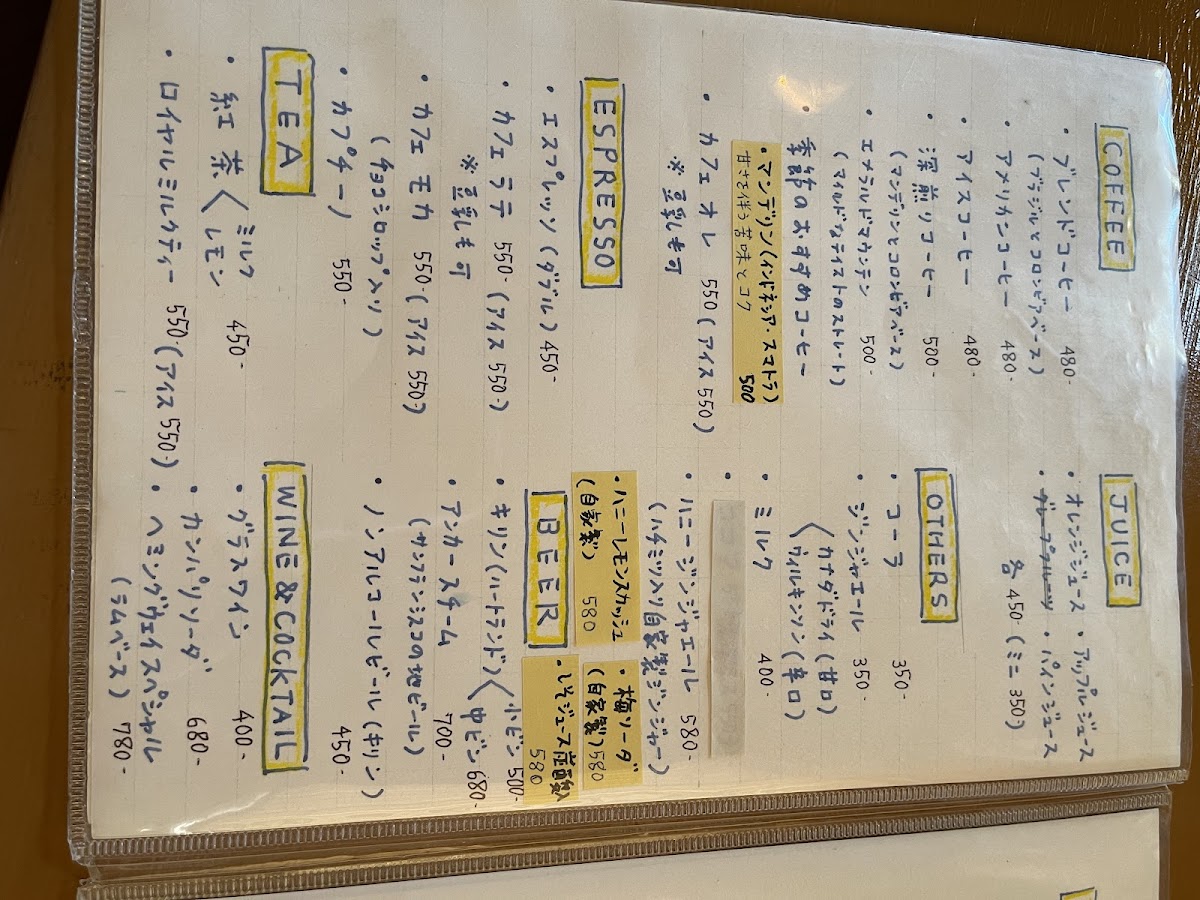 COFFEE
・ブレンドコーヒー 480-
(ブラジルとコロンビアベース)
・アメリカンコーヒー 480-
・アイスコーヒー 480-
・深煎りコーヒー 500-
(マンデリンとコロンビアベース)
・エメラルドマウンテン 500-
(マイルドなテイストのストレート)
季節のおすすめコーヒー
・マンデリン(インドネシア・スマトラ)
甘さを伴う苦味とコク 500
・カフェオレ 550(アイス550)
※豆乳も可
ESPRESSO
・エスプレッソ(ダブル) 450-
・カフェラテ 550-(アイス550-)
※豆乳も可
・カフェモカ 550-(アイス550-)
(チョコシロップ入り)
・カプチーノ 550-
TEA
・紅茶〈ミルク
レモン 450-
・ロイヤルミルクティー 550-(アイス550-)
JUICE
・オレンジジュース ・アップルジュース
・グレープフルーツ ・パインジュース
各450-(ミニ350)
OTHERS
・コーラ 350-
・ジンジャエール 350-
〈カナダドライ(甘口)
ウィルキンソン(辛口)
・ミルク 400-
・ハニージンジャエール 580-
(ハチミツ入り自家製ジンジャー)
・ハニーレモンスカッシュ
(自家製) 580
・梅ソーダ
(自家製) 580
・しそジュース
580
BEER
・キリン(ハートランド)〈小ビン500-
中ビン680-
・アンカースチーム 700-
(サンフランシスコの地ビール)
・ノンアルコールビール(キリン)
450-
WINE&COCKTAIL
・グラスワイン 400-
・カンパリソーダ 680-
・ヘミングウェイスペシャル
(ラムベース) 780-